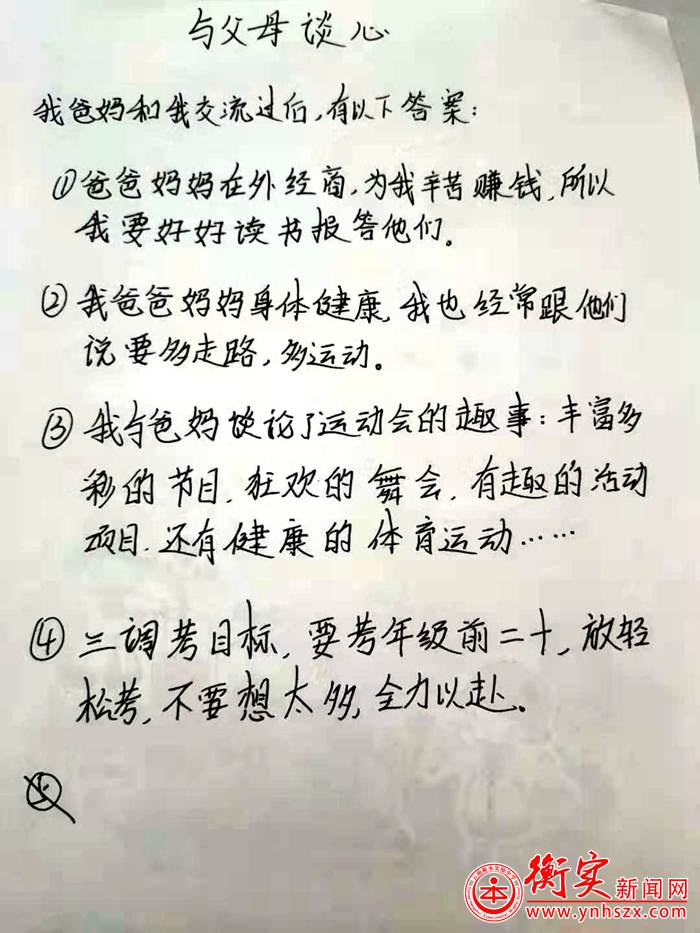 与父母谈心
我爸妈和我交流过后，有以下答案：
①爸爸妈妈在外经商，为我辛苦赚钱，所以
我要好好读书报答他们。
②我爸爸妈妈身体健康，我也经常跟他们
说要多走路，多运动。
③我与爸妈谈论了运动会的趣事：丰富多
彩的节目，狂欢的舞会，有趣的活动
项目，还有健康的体育运动……
④三调考目标，要考年级前二十，放轻
松考，不要想太多，全力以赴。
本
衡实新闻网
www.ynhszx.com